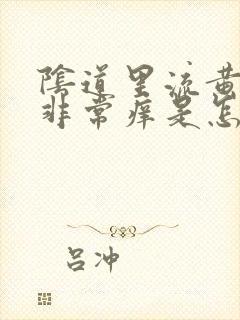 陰道里流黄
非常痒是怎
吕冲